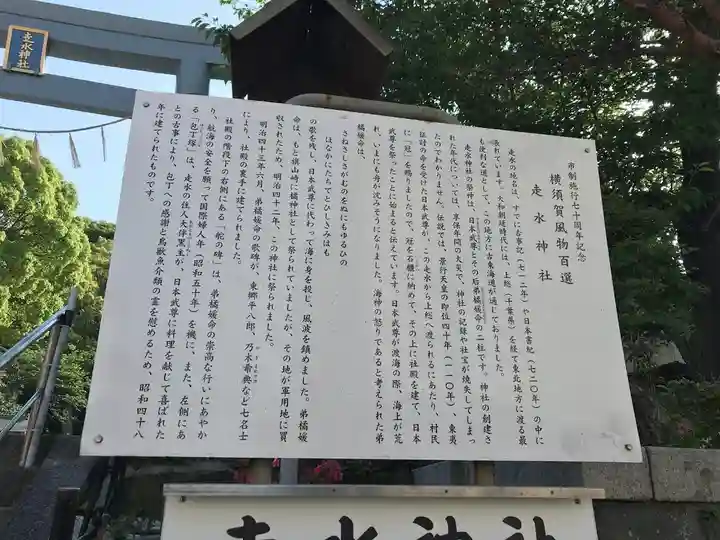 走水神社
市制施行七十周年記念
横須賀風物百選
走水神社
走水の地名は、すでに古事記(七一二年)や日本書紀(七二〇年)の中に
表れています。大和朝廷時代には、上総(千葉県)を経て東北地方に渡る最
も便利な道として、この地方に古東海道が通じておりました。
走水神社の祭神は、日本武尊とその后弟橘媛命の二柱です。神社の創建さ
れた年代については、享保年間の火災で、神社の記録や社宝が焼失してしまっ
たのでわかりません。伝説では、景行天皇の即位四十年(一一〇年)、東夷
征討の命を受けた日本武尊が、この走水から上総へ渡られるにあたり、村民
に「冠」を賜りましたので、冠を石櫃に納めて、その上に社殿を建て、日本
武尊を祭ったことに始まると伝えています。日本武尊が渡海の際、海上が荒
れ、いまにも舟が沈みそうになりました。海神の怒りであると考えられた弟
橘媛命は、
さねさしさがむのをぬにもゆるひの
ほなかにたちてとひしきみはも
の歌を残し、日本武尊に代わって海に身を投じ、風波を鎮めました。弟橘媛
命は、もと旗山崎に橘神社として祭られていましたが、その地が軍用地に買
収されたため、明治四十二年、この神社に祭られました。
明治四十三年六月、弟橘媛命の歌碑が、東郷平八郎、乃木希典など七名士
により、社殿の裏手に建てられました。
社殿の階段下の右側にある「舵の碑」は、弟橘媛命の崇高な行いにあやか
り、航海の安全を願って国際婦人年(昭和五十年)を機に、また、左側にあ
る「包丁塚」は、走水の住人大伴黒主が、日本武尊に料理を献じて喜ばれた
との古事により、包丁への感謝と鳥獣魚介類の霊を慰めるため、昭和四十八
年に建てられたものです。
走水神社